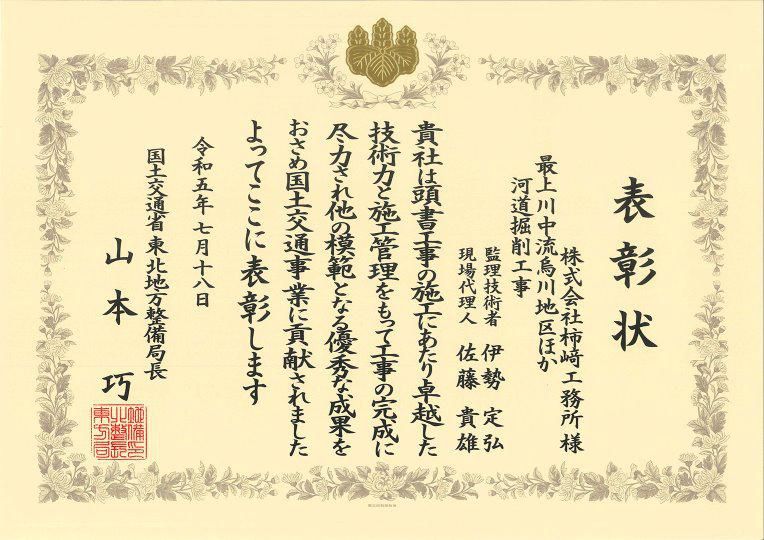 表彰状
株式会社柿﨑工務所様
最上川中流烏川地区ほか
河道掘削工事
監理技術者 伊勢定弘
現場代理人 佐藤貴雄
貴社は頭書工事の施工にあたり卓越した
技術力と施工管理をもって工事の完成に
尽力され他の模範となる優秀な成果を
おさめ国土交通事業に貢献されました
よってここに表彰します
令和五年七月十八日
国土交通省東北地方整備局長
山本巧